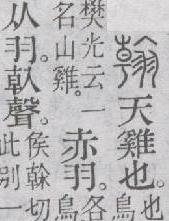 翰天雞也。也
鳥
樊光云一
名山雞。
赤羽。各
鳥
从羽。倝聲。侯榦切
此別一